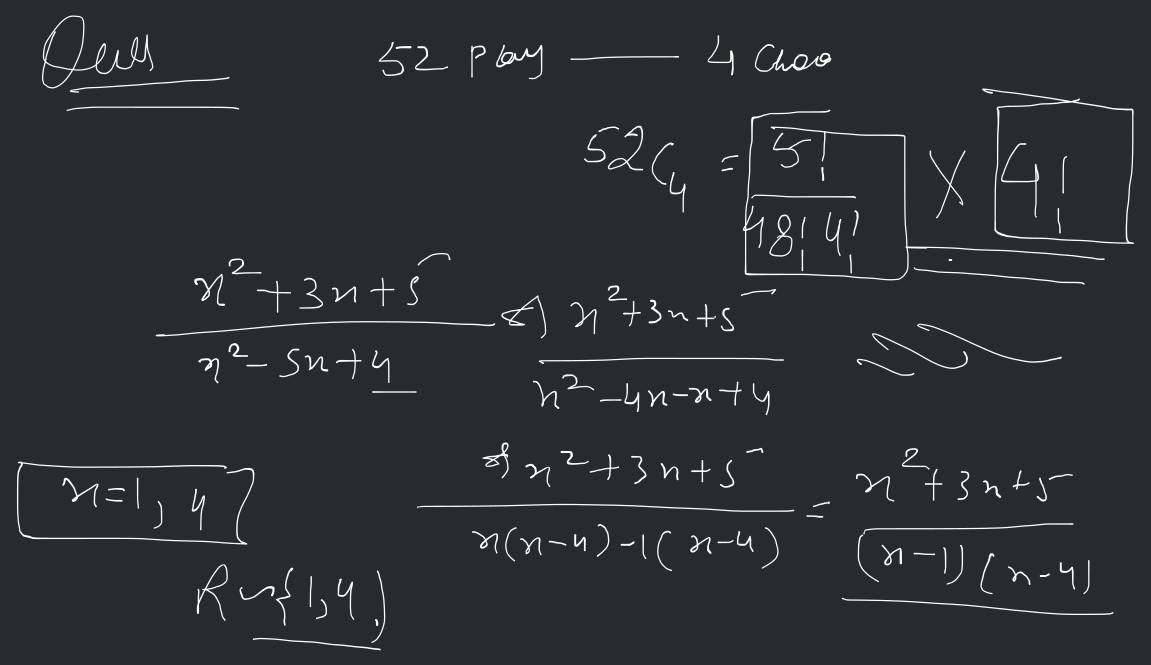 Ques
52 Play — 4 Choo
52C₄ = 5! / 48! 4! × 4!
x² + 3x + 5 / x² - 5x + 4
x² + 3x + 5 / x² - 4x - x + 4
x² + 3x + 5 / x(x-4) - 1(x-4) = x² + 3x + 5 / (x-1)(x-4)
x = 1, 4
R ~ {1, 4}